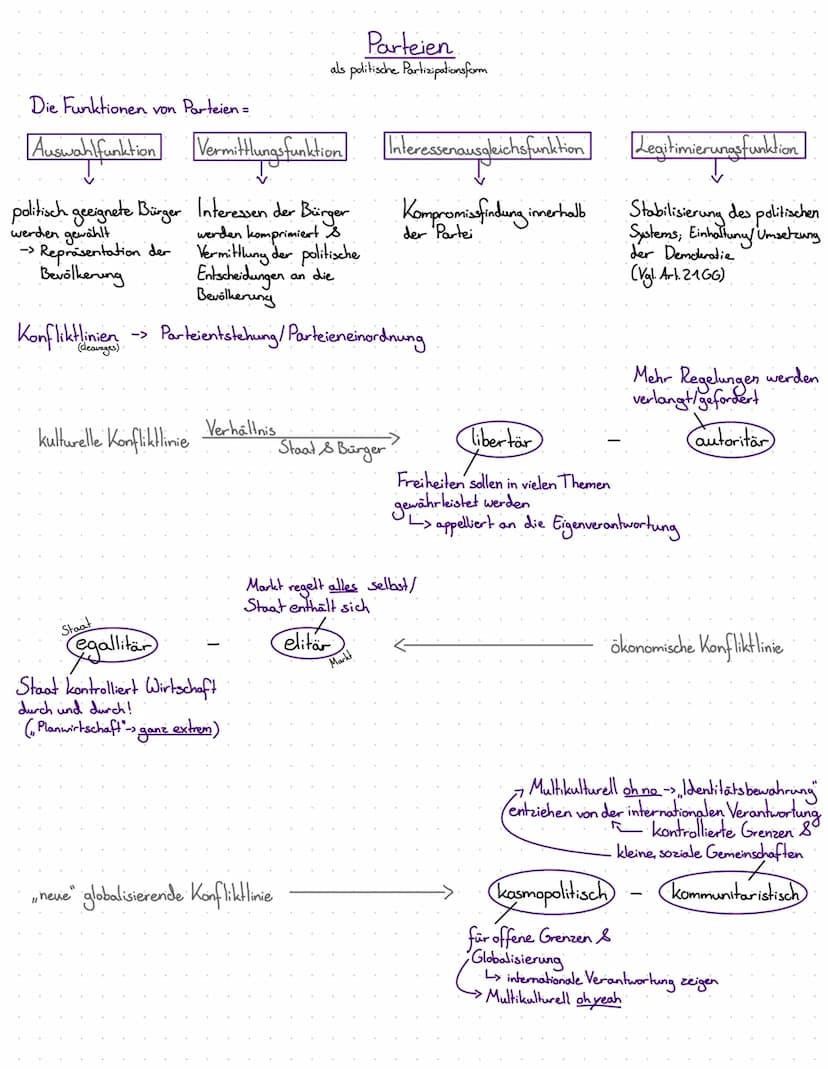 Parteien
als politische Partizipationsform
Die Funktionen von Parteien =
Auswahlfunktion
politisch geeignete Bürger
werden gewählt
-> Repräsentation der
Bevölkerung
Vermittlungsfunktion
Interessen der Bürger
werden komprimiert &
Vermittlung der politische
Entscheidungen an die
Bevölkerung
Interessenausgleichsfunktion
Kompromissfindung innerhalb
der Partei
Legitimierungsfunktion
Stabilisierung des politischen
Systems; Einhaltung/Umsetzung
der Demokratie
(Vgl. Art. 21 GG)
Konfliktlinien -> Parteientstehung/Parteieneinordnung
(cleavages)
Mehr Regelungen werden
verlangt/gefordert
kulturelle Konfliktlinie Verhältnis
Staat & Bürger
libertär - autoritär
Freiheiten sollen in vielen Themen
gewährleistet werden
↳ appelliert an die Eigenverantwortung
Markt regelt alles selbst/
Staat enthält sich
Staat
egallitär - elitär
Markt
ökonomische Konfliktlinie
Staat kontrolliert Wirtschaft
durch und durch!
(„Planwirtschaft"-> ganz extrem)
Multikulturell oh no -> „Identitätsbewahrung"
entziehen von der internationalen Verantwortung
kontrollierte Grenzen &
kleine, soziale Gemeinschaften
„neue" globalisierende Konfliktlinie
kosmopolitisch - kommunitaristisch
für offene Grenzen &
Globalisierung
↳ internationale Verantwortung zeigen
-> Multikulturell oh yeah